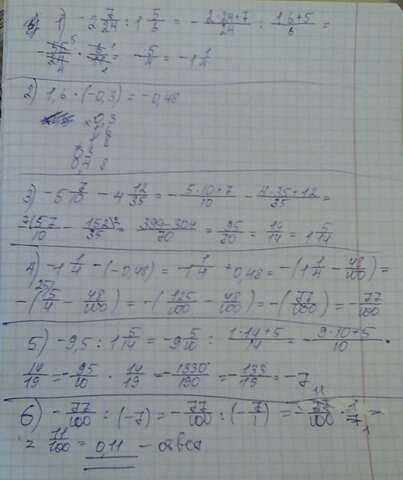 1) -2 7/24 : 1 5/6 = - 2·24+7/24 : 1·6+5/6 =
- 55/24 · 6/11 = - 5/4 = -1 1/4
2) 1,6 · (-0,3) = -0,48
× 0,3
3) -5 7/10 - 4 12/35 = - 5·10+7/10 - 4·35+12/35 =
57/10 - 152/35 = 399-304/70 = 95/70 = 19/14 = 1 5/14
4) -1 1/4 - (-0,48) = -1 1/4 + 0,48 = -(1 1/4 - 48/100) =
-(5/4 - 48/100) = -(125/100 - 48/100) = -(77/100) = -77/100
5) -9,5 : 1 5/14 = -9 5/10 : 1·14+5/14 = - 9·10+5/10 ·
14/19 = -95/10 · 14/19 = -1330/190 = -133/19 = -7
6) -77/100 : (-7) = -77/100 : (-7/1) = -77/100 · 1/7 =
= 11/100 = 0,11 - ответ